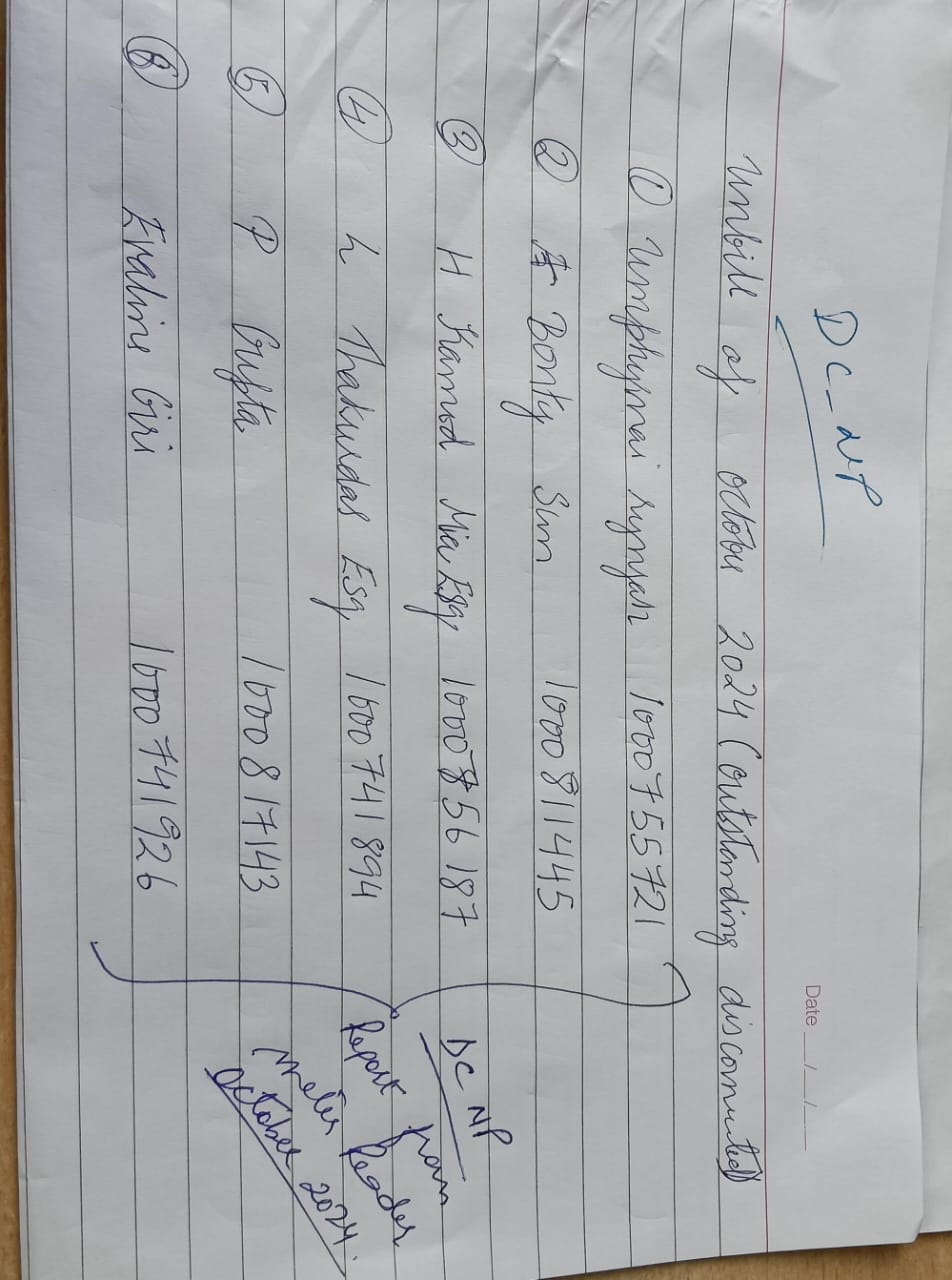 DC-NP
Date __/__/__
Unbill of october 2024 (outstanding disconnected)
① Umphyrnai Rynjah 1000755721
② A Bonty Sun 1000811445
③ H Kamod Mia Esq, 1000856187
④ L Thakurdas Esq, 1000741894
⑤ P Gupta 1000817143
⑥ Evaline Giri 1000741926
DC NP
Report from
Meter Reader
October 2024.